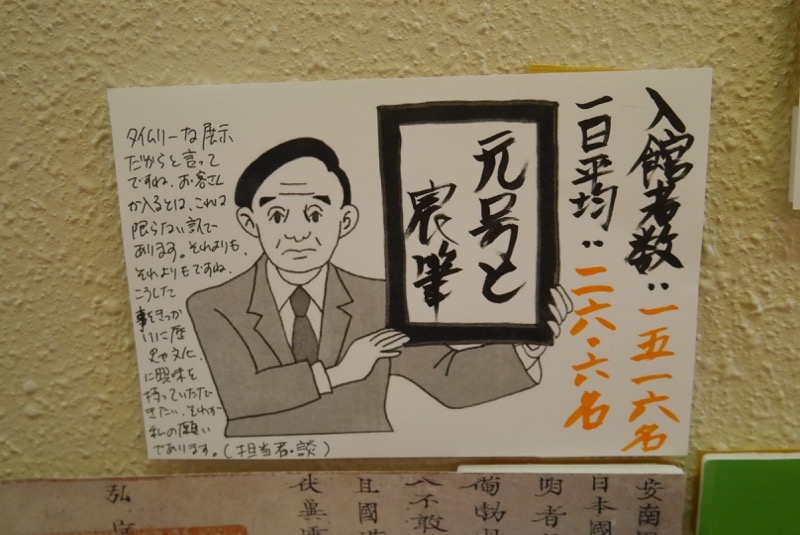 入館者数：一五一六名
一日平均：二六・六名
元号と
宸筆
タイムリーな展示
だからと言って
ですね、お客さん
が入るとは、これは
限らない訳で
あります。それよりも、
それよりもですね、
こうした
事をきっか
けに歴
史や文化、
に興味を
持っていただ
きたい、それが
私の願い
であります。(担当者・談)
安南
日本國
者
不敢
且國
伏冀
弘